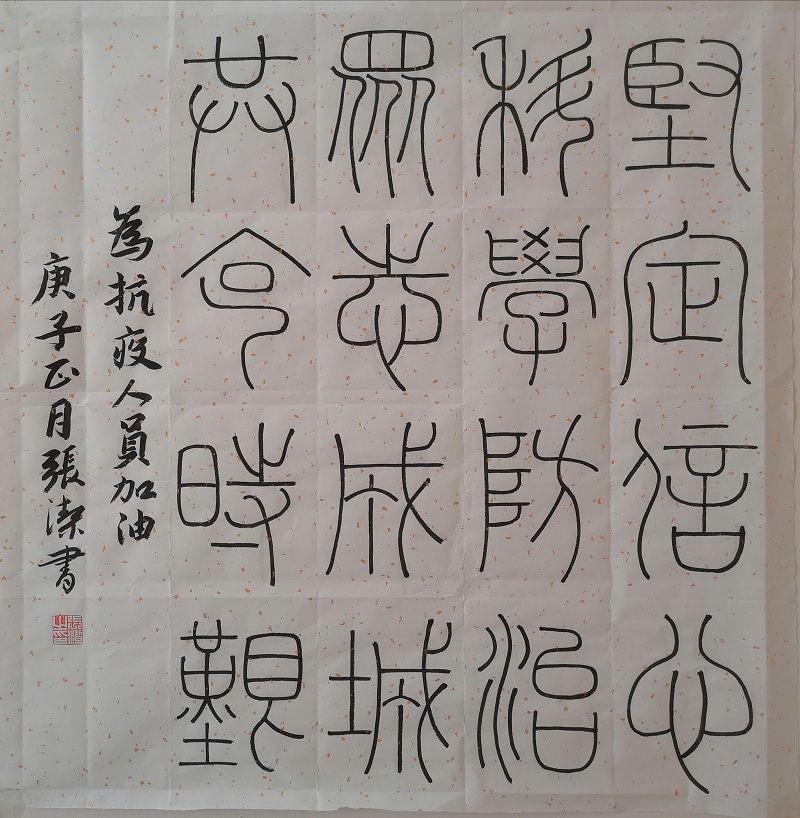 堅定信心
科學防治
眾志成城
共克時艱
為抗疫人員加油
庚子正月張潔書